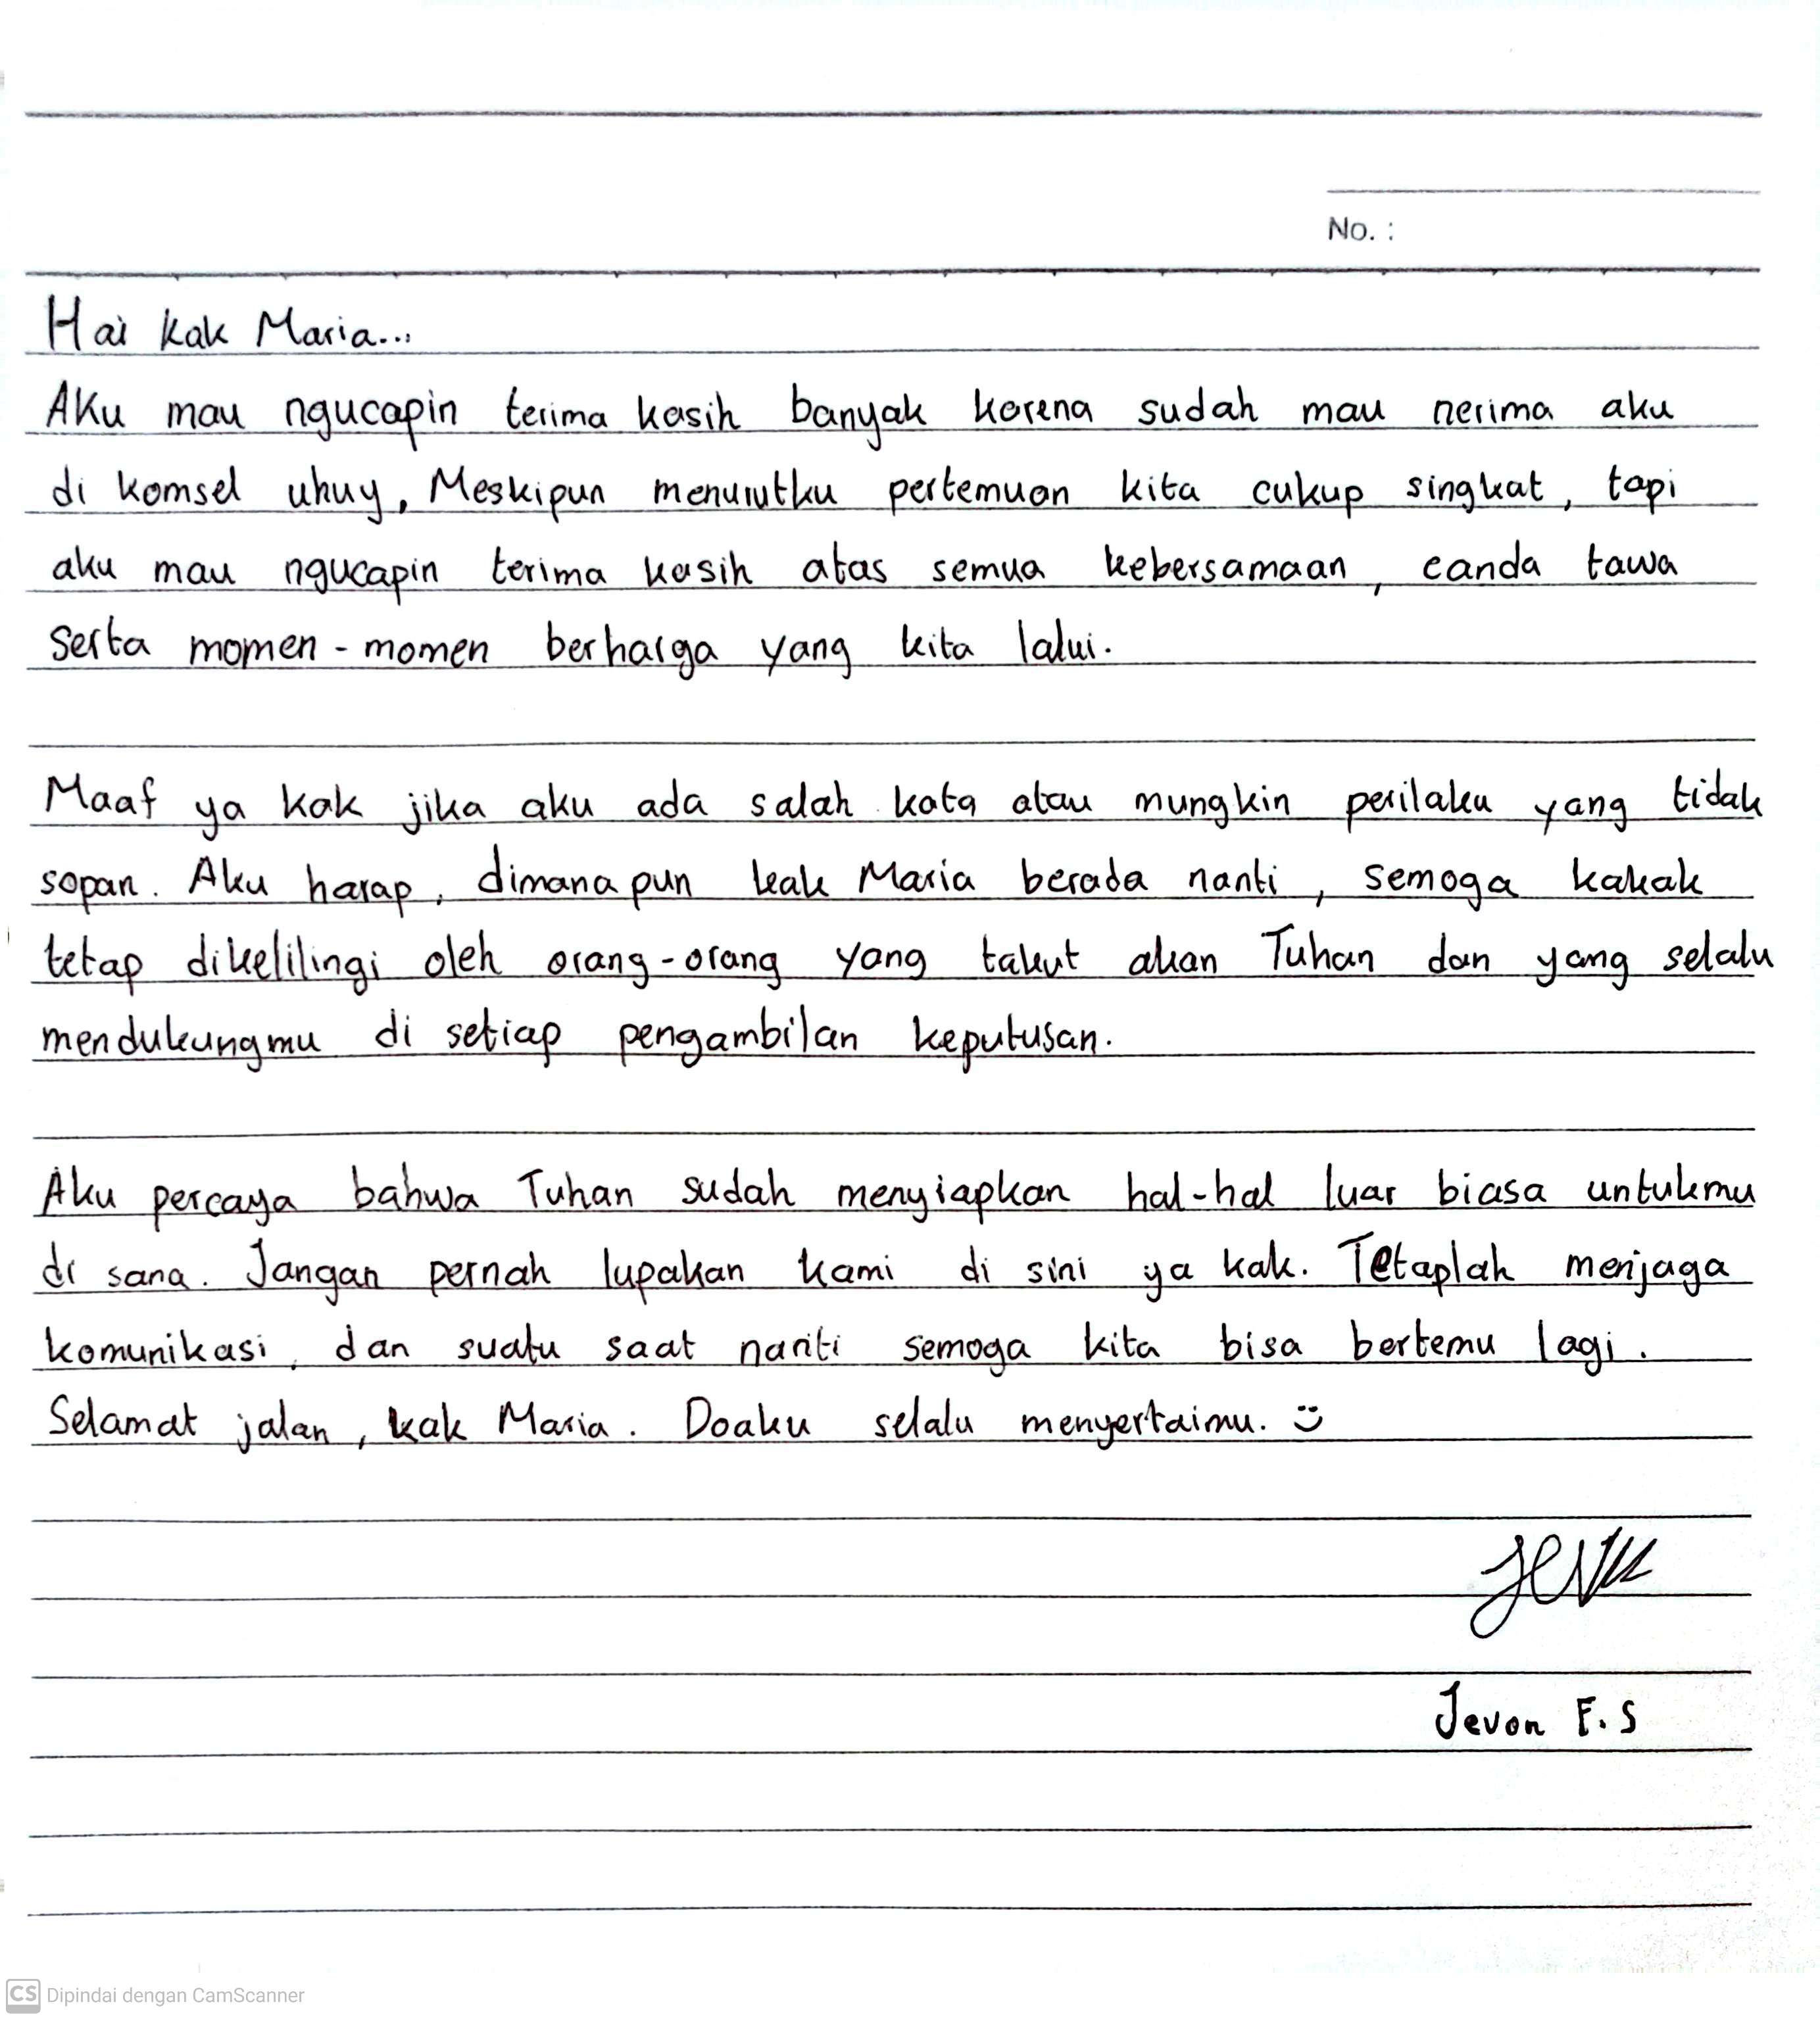 No. :
Hai kak Maria...
Aku mau ngucapin terima kasih banyak karena sudah mau nerima aku
di komsel uhuy, Meskipun menurutku pertemuan kita cukup singkat, tapi
aku mau ngucapin terima kasih atas semua kebersamaan, canda tawa
serta momen-momen berharga yang kita lalui.
Maaf ya kak jika aku ada salah kata atau mungkin perilaku yang tidak
sopan. Aku harap, dimanapun kak Maria berada nanti, semoga kakak
tetap dikelilingi oleh orang-orang yang takut akan Tuhan dan yang selalu
mendukungmu di setiap pengambilan keputusan.
Aku percaya bahwa Tuhan sudah menyiapkan hal-hal luar biasa untukmu
di sana. Jangan pernah lupakan kami di sini ya kak. Tetaplah menjaga
komunikasi, dan suatu saat nanti semoga kita bisa bertemu lagi.
Selamat jalan, kak Maria. Doaku selalu menyertaimu. :)
Jevon F.S
CS Dipindai dengan CamScanner